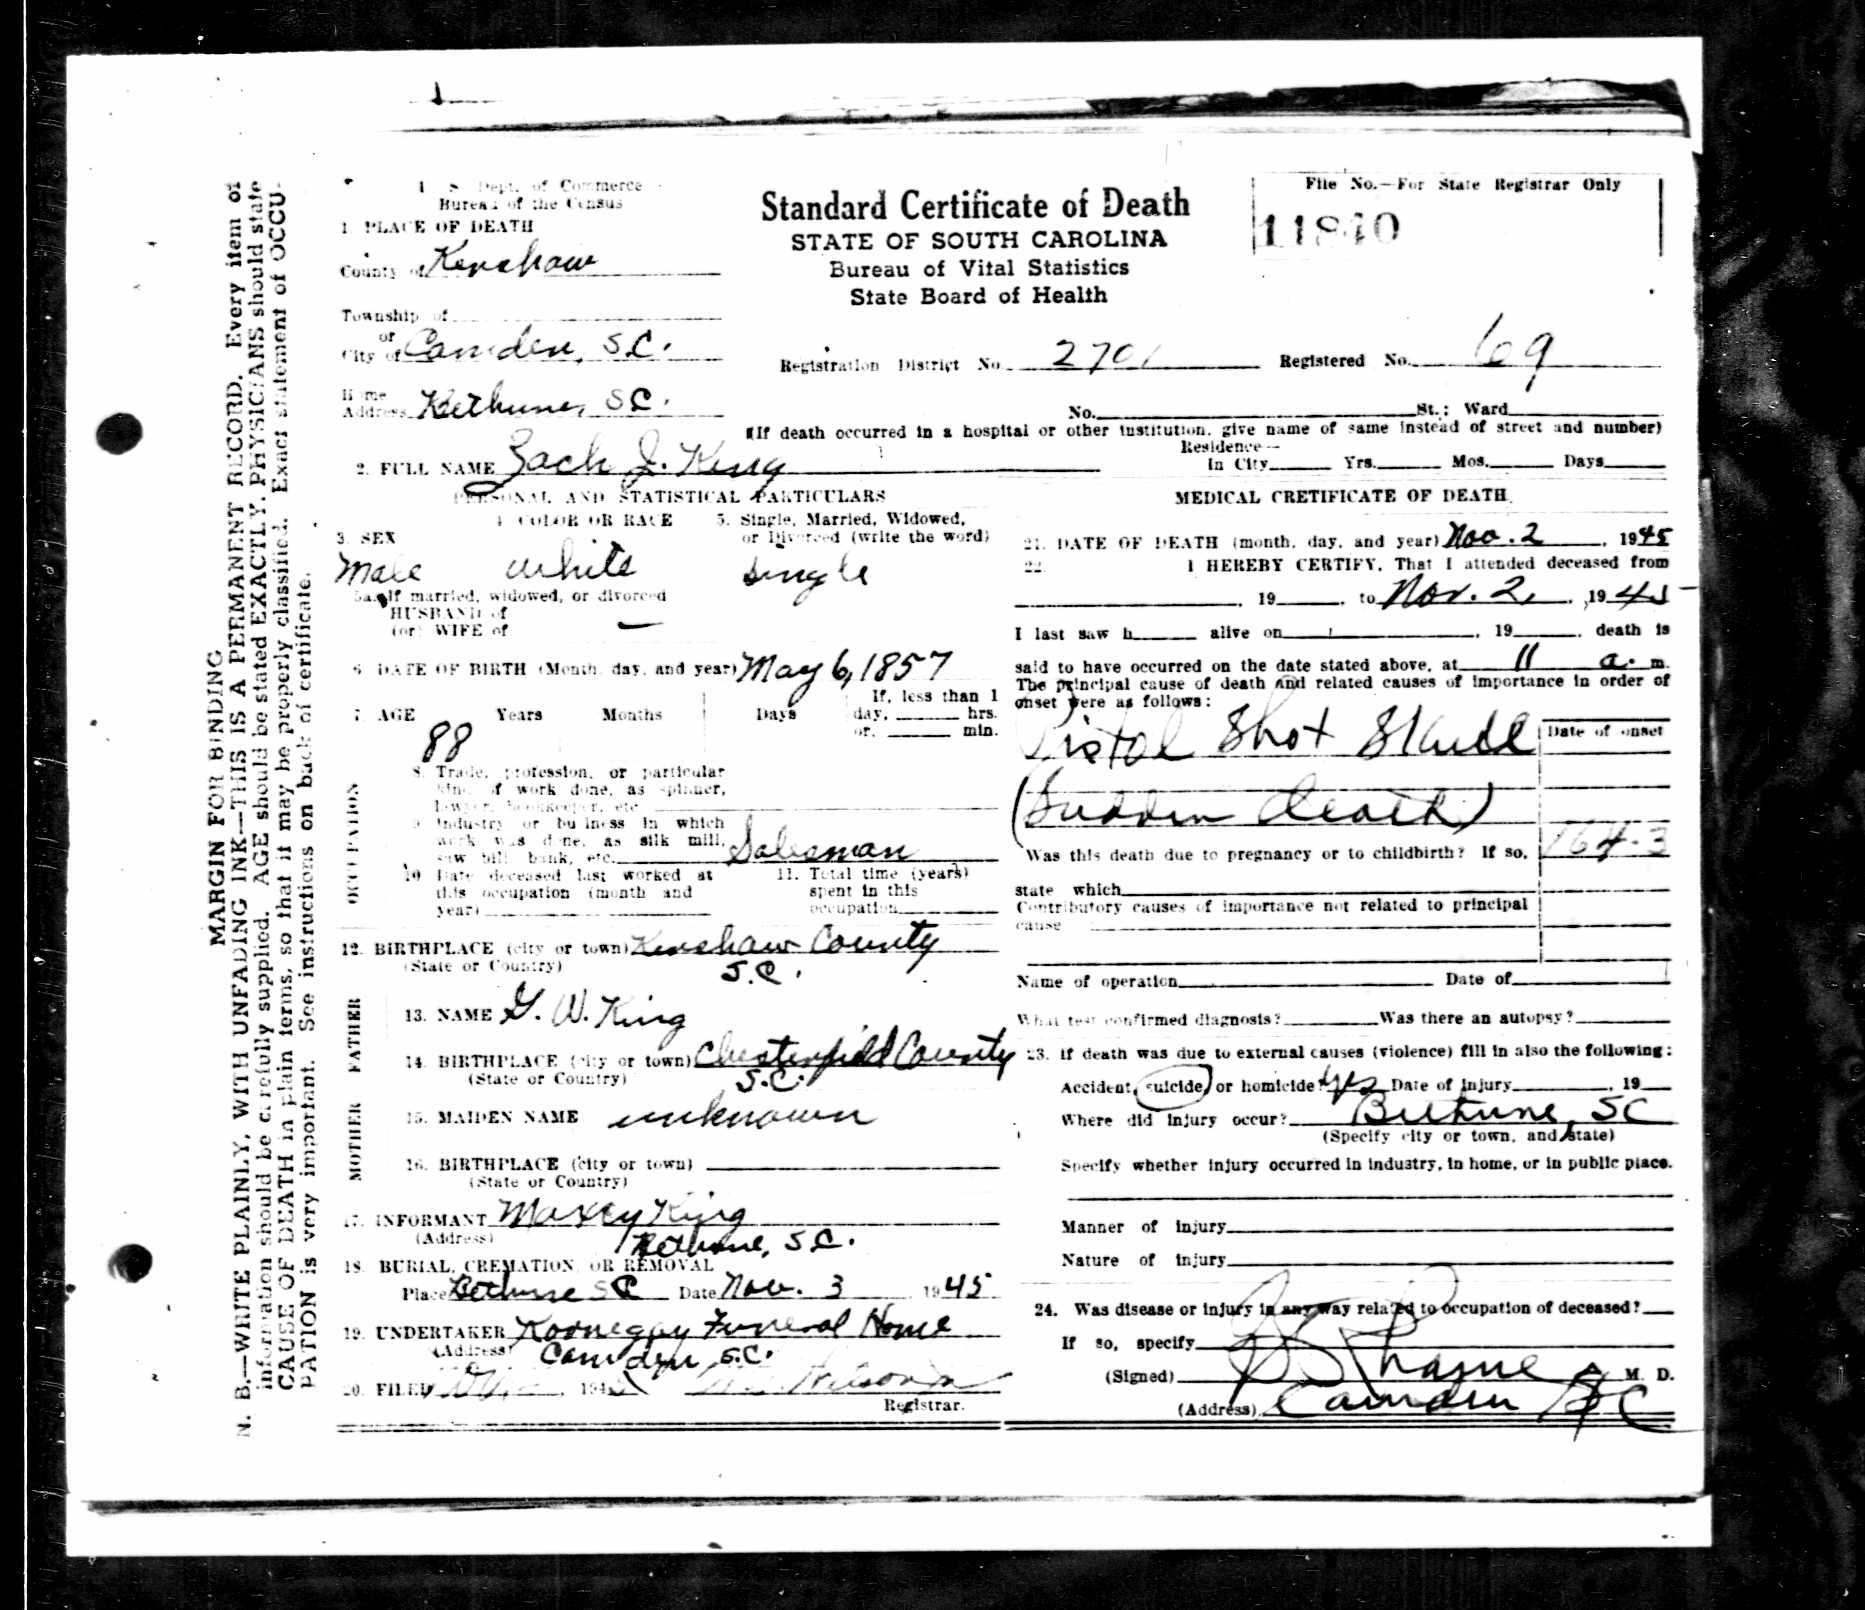 U. S. Dept. of Commerce
Bureau of the Census
Standard Certificate of Death
STATE OF SOUTH CAROLINA
Bureau of Vital Statistics
State Board of Health
File No.—For State Registrar Only
11840
1. PLACE OF DEATH
County of Kershaw
Township of
or
City of Camden, S.C.
Registration District No. 2701 Registered No. 69
Home
Address Bethune, S.C.
No. St.; Ward
(If death occurred in a hospital or other institution, give name of same instead of street and number)
2. FULL NAME Zach J. King
Residence—
In City Yrs. Mos. Days
PERSONAL AND STATISTICAL PARTICULARS
3. SEX 4. COLOR OR RACE 5. Single, Married, Widowed,
or Divorced (write the word)
Male white single
5a. If married, widowed, or divorced
HUSBAND of
(or) WIFE of —
6. DATE OF BIRTH (Month, day, and year) May 6, 1857
7. AGE Years Months Days If, less than 1
day, hrs.
or, min.
88
OCCUPATION
8. Trade, profession, or particular
kind of work done, as spinner,
lawyer, bookkeeper, etc.
9. Industry or business in which
work was done, as silk mill,
saw bill bank, etc. Salesman
10. Date deceased last worked at
this occupation (month and
year)
11. Total time (years)
spent in this
occupation
12. BIRTHPLACE (city or town) Kershaw County
(State or Country) S.C.
FATHER
13. NAME G. W. King
14. BIRTHPLACE (city or town) Chesterfield County
(State or Country) S.C.
MOTHER
15. MAIDEN NAME unknown
16. BIRTHPLACE (city or town)
(State or Country)
17. INFORMANT Maxcy King
(Address) Bethune, S.C.
18. BURIAL, CREMATION OR REMOVAL
Place Bethune S C Date Nov. 3 1945
19. UNDERTAKER Kornegay Funeral Home
(Address) Camden, S.C.
20. FILED , 194
Registrar.
MEDICAL CRETIFICATE OF DEATH
21. DATE OF DEATH (month, day, and year) Nov. 2 , 1945
22. I HEREBY CERTIFY, That I attended deceased from
, 19 , to Nov. 2, , 1945
I last saw h alive on , 19 , death is
said to have occurred on the date stated above, at 11 a. m.
The principal cause of death and related causes of importance in order of
onset were as follows:
Pistol Shot Skull
Date of onset
(Sudden death)
Was this death due to pregnancy or to childbirth? If so, 164-3
state which
Contributory causes of importance not related to principal
cause
Name of operation Date of
What test confirmed diagnosis? Was there an autopsy?
23. If death was due to external causes (violence) fill in also the following:
Accident, suicide, or homicide? Yes Date of injury , 19
Where did injury occur? Bethune, SC
(Specify city or town, and state)
Specify whether injury occurred in industry, in home, or in public place.
Manner of injury
Nature of injury
24. Was disease or injury in any way related to occupation of deceased?
If so, specify
(Signed) Rhame M. D.
(Address) Camden S C
MARGIN FOR BINDING
N. B.—WRITE PLAINLY, WITH UNFADING INK—THIS IS A PERMANENT RECORD. Every item of
information should be carefully supplied. AGE should be stated EXACTLY. PHYSICIANS should state
CAUSE OF DEATH in plain terms, so that it may be properly classified. Exact statement of OCCU-
PATION is very important. See instructions on back of certificate.